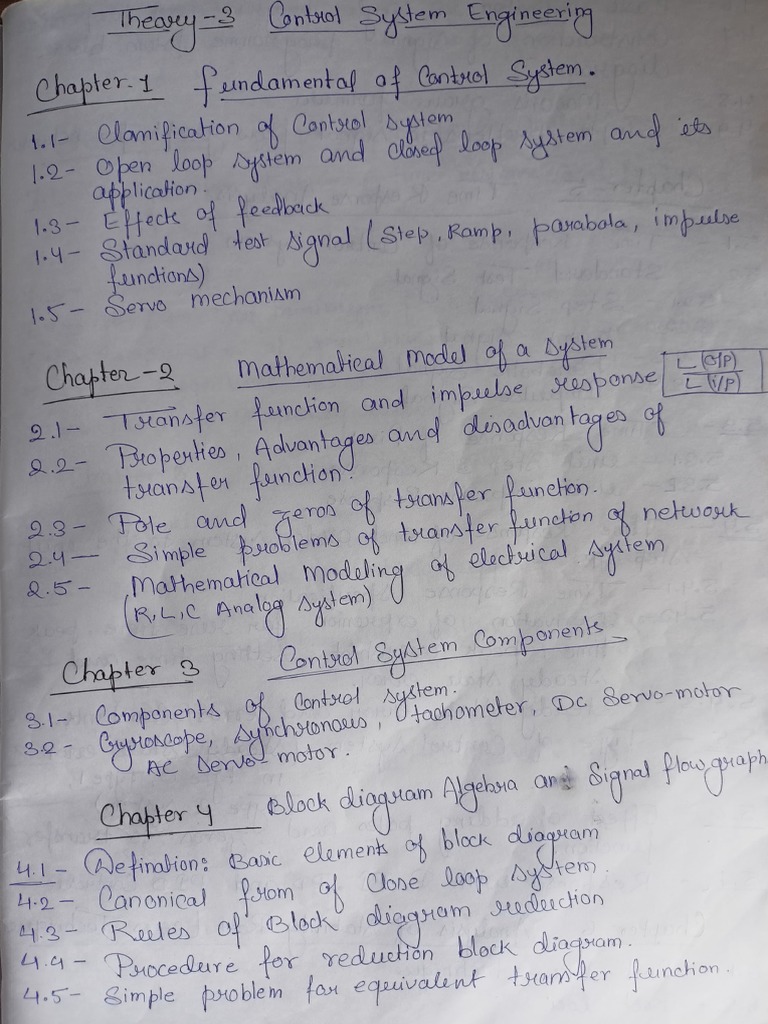 Theory-3 Control System Engineering
Chapter-1 fundamental of Control System.
1.1- Clamification of Control system
1.2- Open loop system and closed loop system and its
application.
1.3- Effects of feedback
1.4- Standard test signal (Step, Ramp, parabola, impulse
functions)
1.5- Servo mechanism
Chapter-2 Mathematical Model of a system
2.1- Transfer function and impulse response L(O/P)
L(I/P)
2.2- Properties, Advantages and disadvantages of
transfer function.
2.3- Pole and zeros of transfer function.
2.4- Simple problems of transfer function of network
2.5- Mathematical Modeling of electrical system
(R, L, C Analog system)
Chapter 3 Control System Components
3.1- Components of Control system.
3.2- Gyroscope, synchronous, tachometer, DC Servo-motor
AC servo-motor.
Chapter 4 Block diagram Algebra and Signal flow graph
4.1- Defination: Basic elements of block diagram
4.2- Canonical from of Close loop system.
4.3- Rules of Block diagram reduction
4.4- Procedure for reduction block diagram.
4.5- Simple problem for equivalent transfer function.